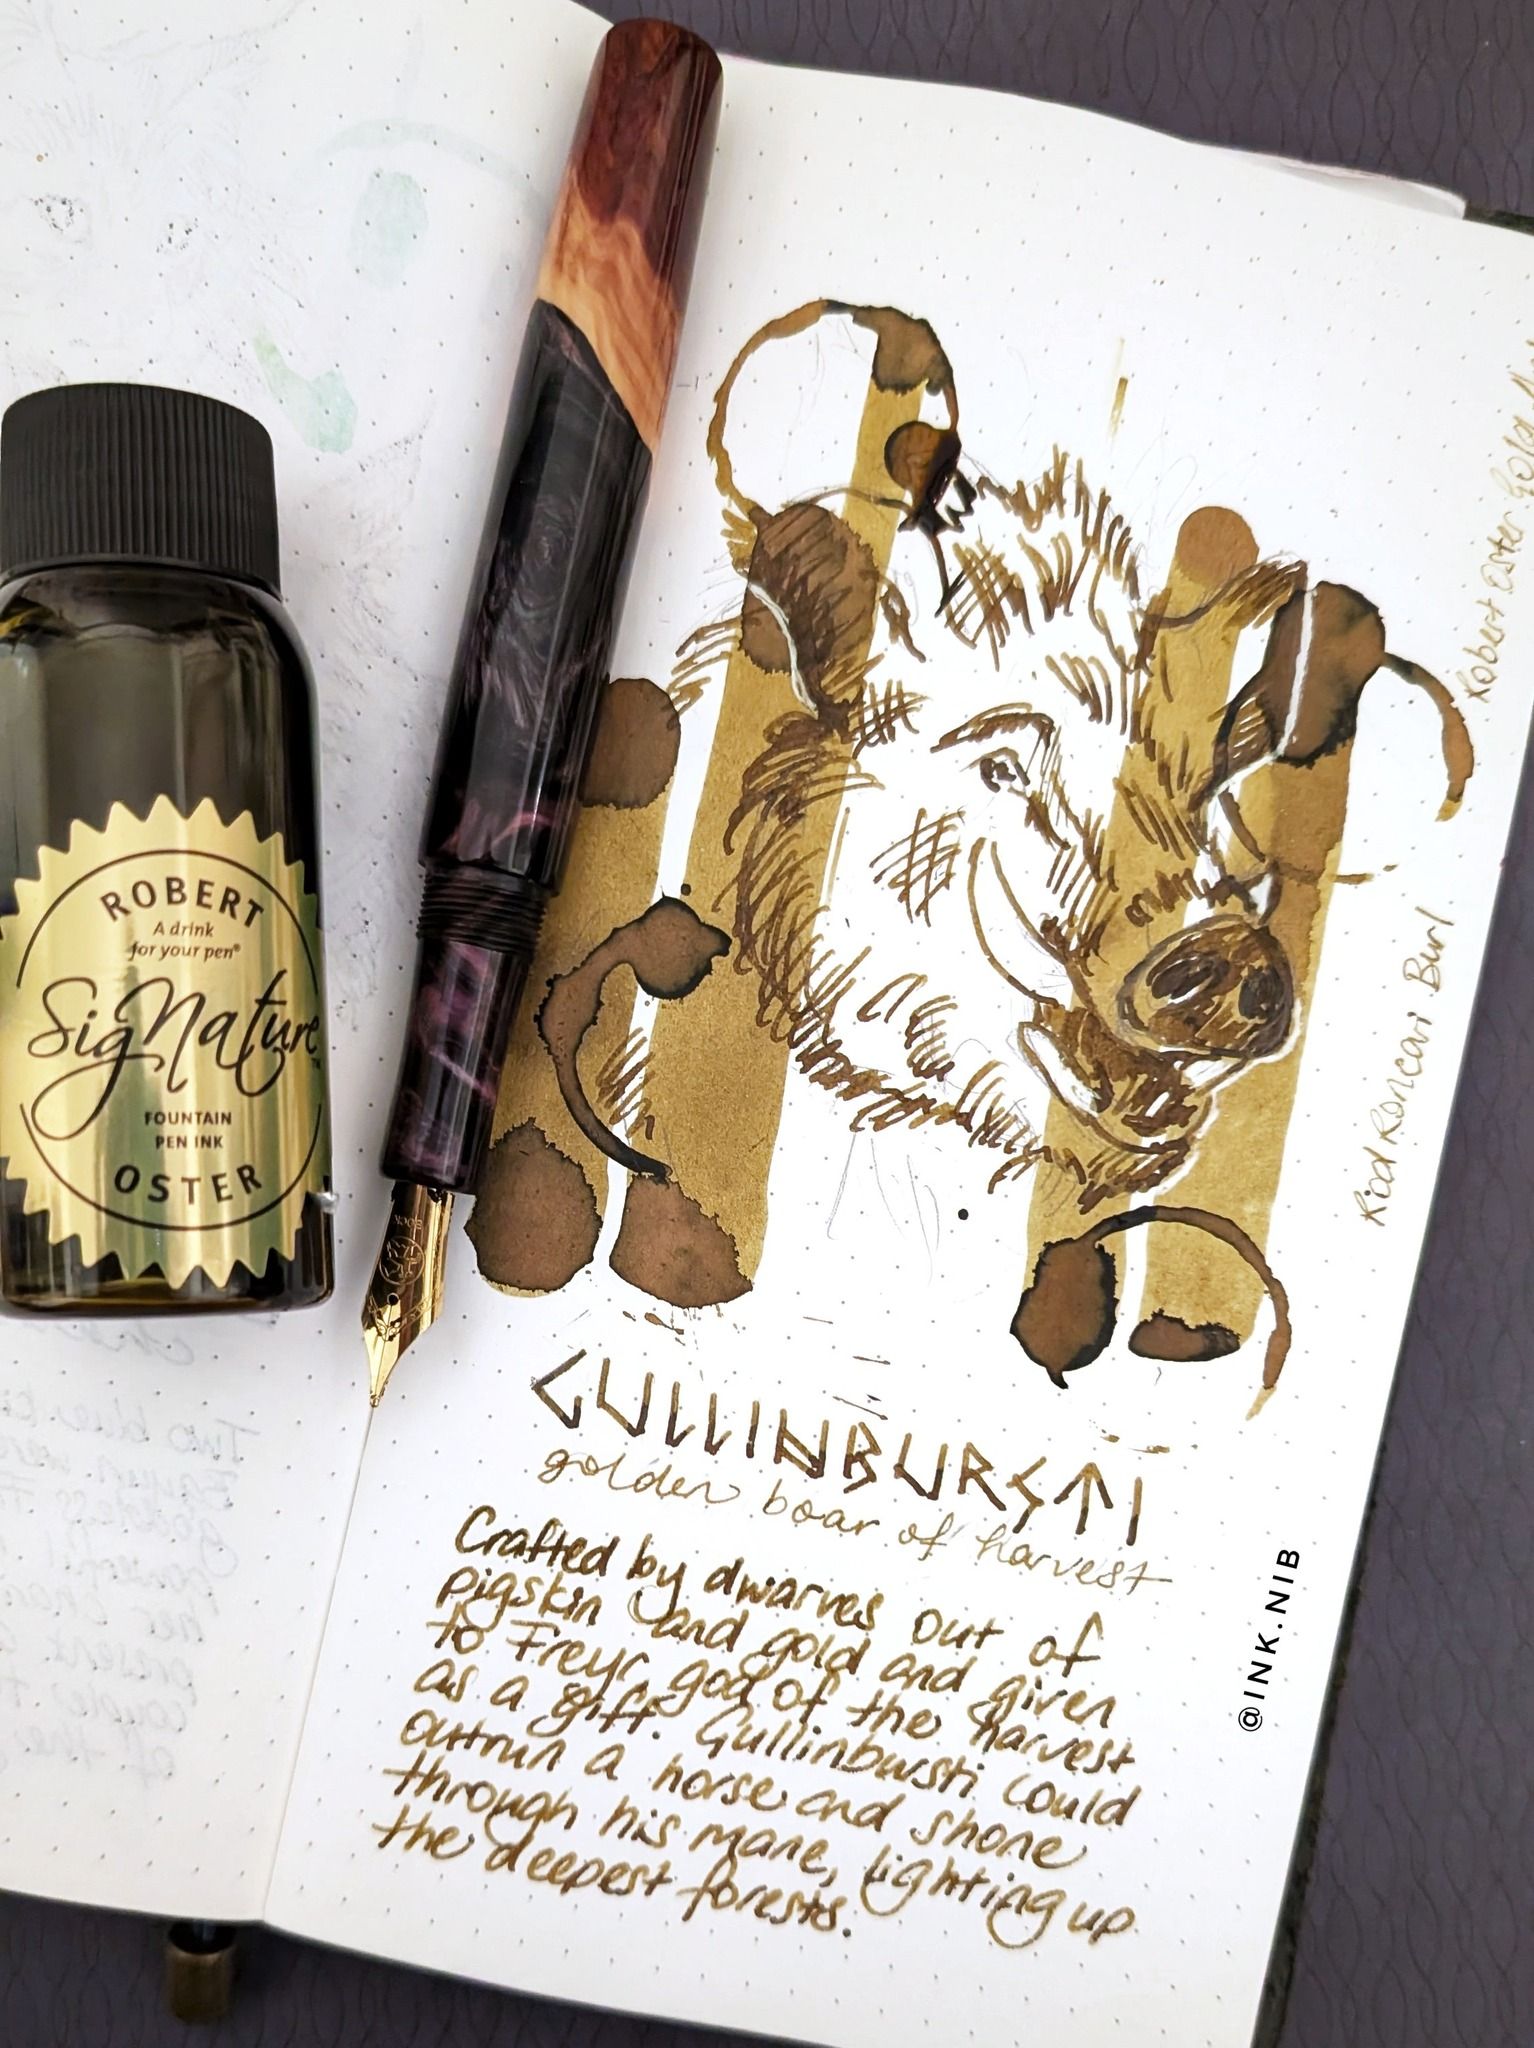 ROBERT
A drink
for your pen®
SigNature™
FOUNTAIN
PEN INK
OSTER
GULLINBURSTI
golden boar of harvest
Crafted by dwarves out of
pigskin and gold and given
to Freyr, god of the harvest
as a gift. Gullinbursti could
outrun a horse and shone
through his mane, lighting up
the deepest forests.
Robert Oster Gold
Riad Roncari Burl
@INK.NIB